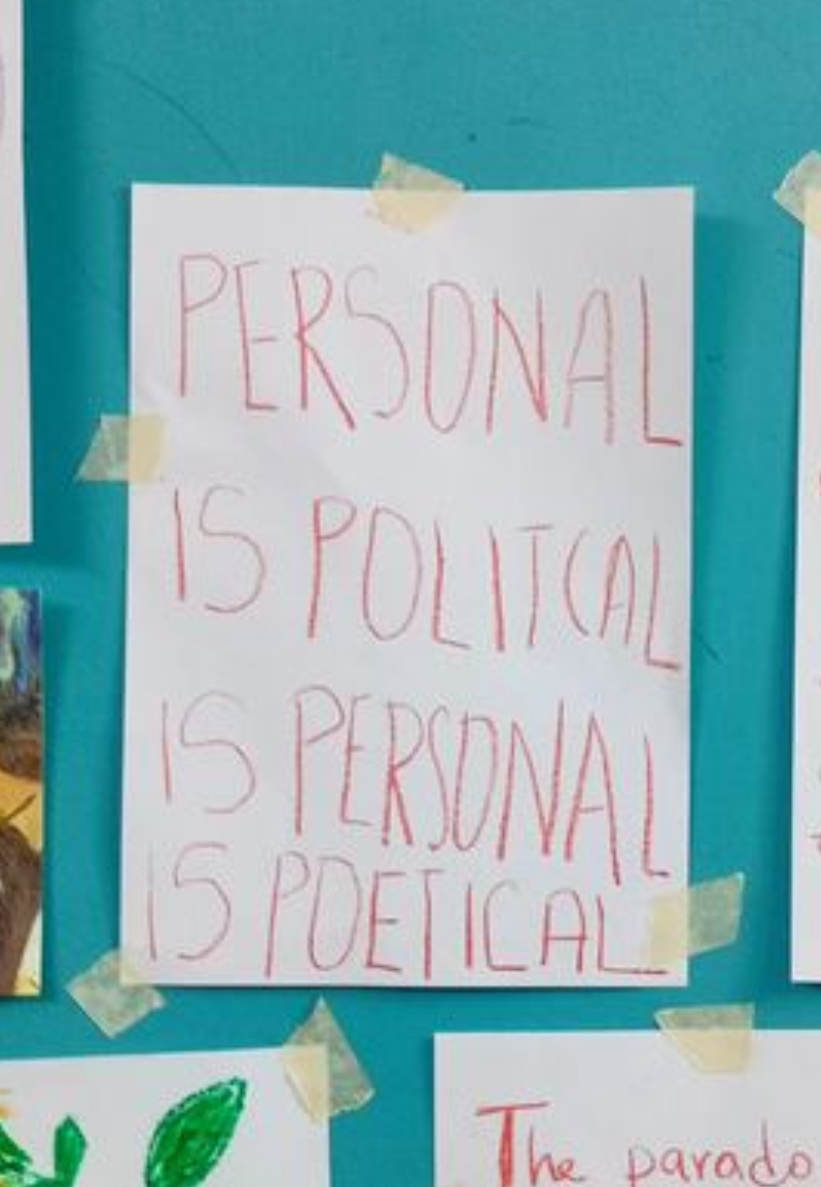 PERSONAL
IS POLITCAL
IS PERSONAL
IS POETICAL
The